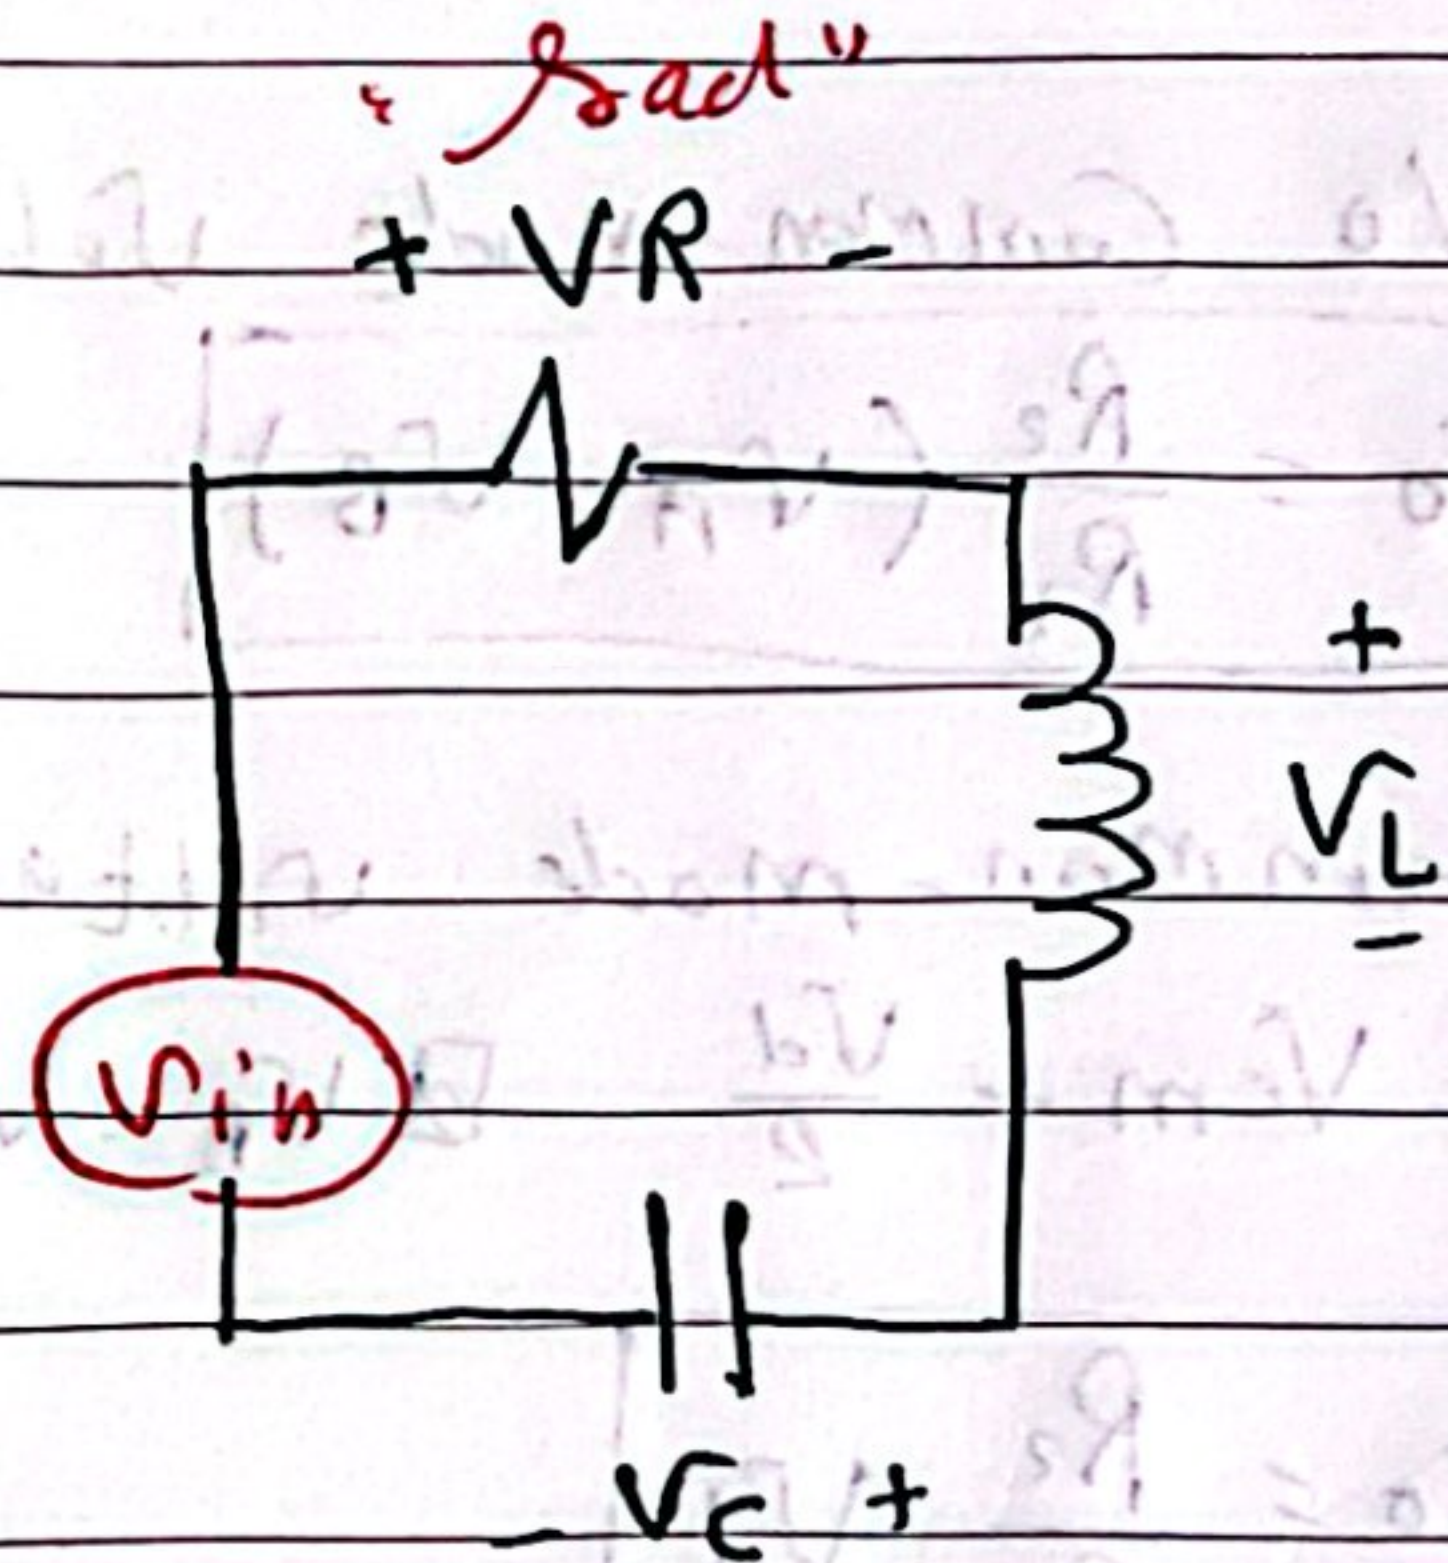 "Sad"
+ VR -
+
VL
-
Vin
- VC +